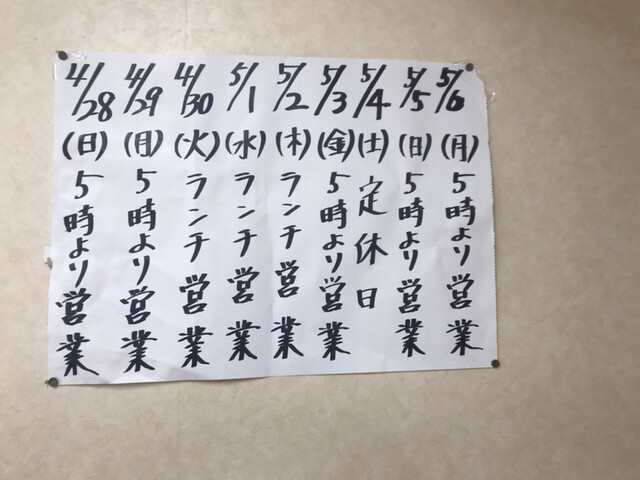 4/28(日)5時より営業
4/29(月)5時より営業
4/30(火)ランチ営業
5/1(水)ランチ営業
5/2(木)ランチ営業
5/3(金)5時より営業
5/4(土)定休日
5/5(日)5時より営業
5/6(月)5時より営業